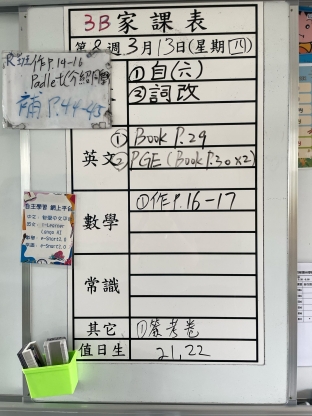 3B家課表
第8週3月13日(星期四)
作P.14-16
Padlet(介紹
補P.44-45
①自(六)
②詞改
英文
①Book P.29
②PGE(Book P.30x2)
數學
①作P.16-17
常識
其它
①簽考卷
值日生
21,22
自主學習 網上平台